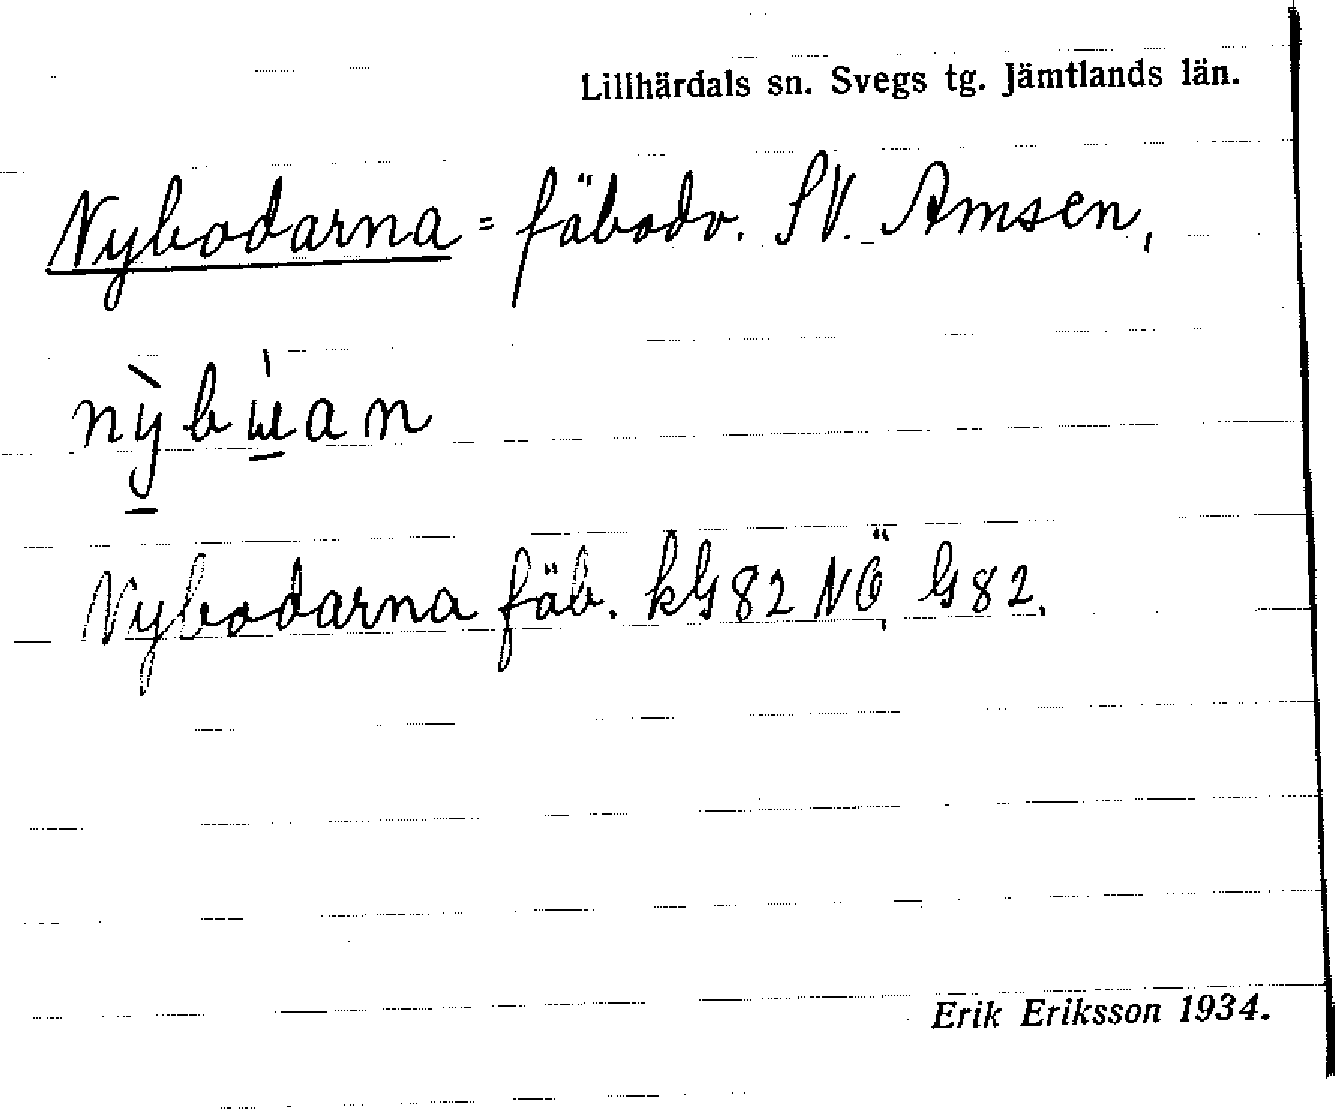 Lillhärdals sn. Svegs tg. Jämtlands län.
Nybodarna = fäbodv. SV. Amsen,
nỳbùan
Nybodarna fäb. kG82 NÖ, G82.
Erik Eriksson 1934.